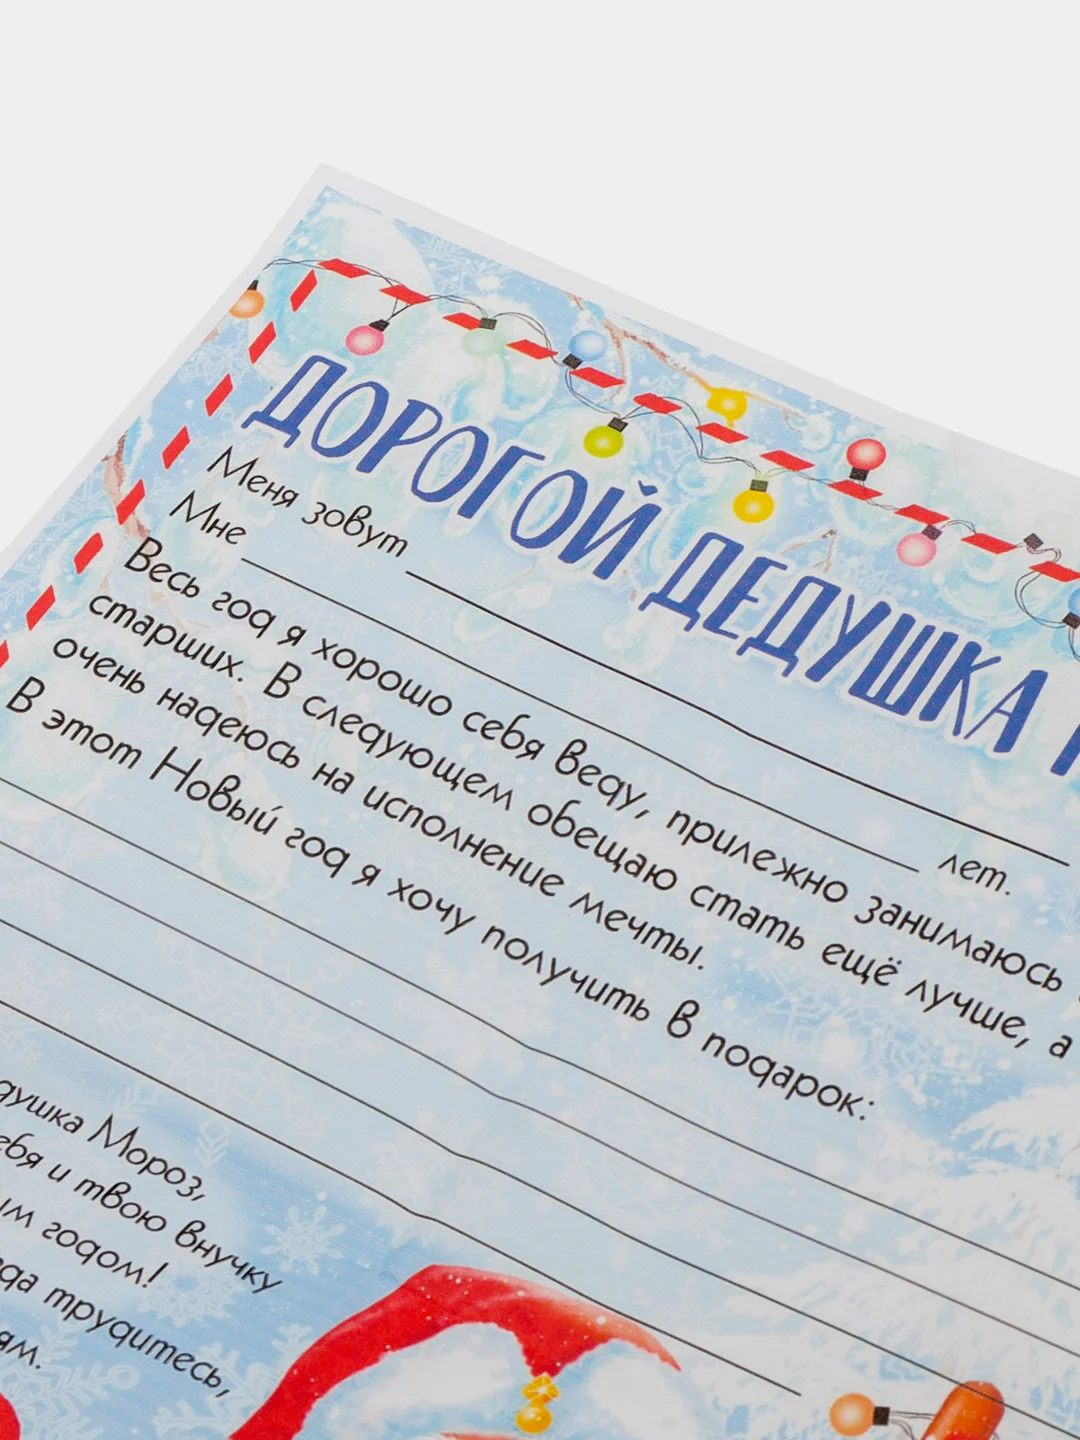 ДОРОГОЙ ДЕДУШКА
Меня зовут
Мне лет.
Весь год я хорошо себя веду, прилежно занимаюсь
старших. В следующем обещаю стать ещё лучше, а
очень надеюсь на исполнение мечты.
В этот Новый год я хочу получить в подарок:
Мороз,
и твою внучку
годом!
трудитесь,